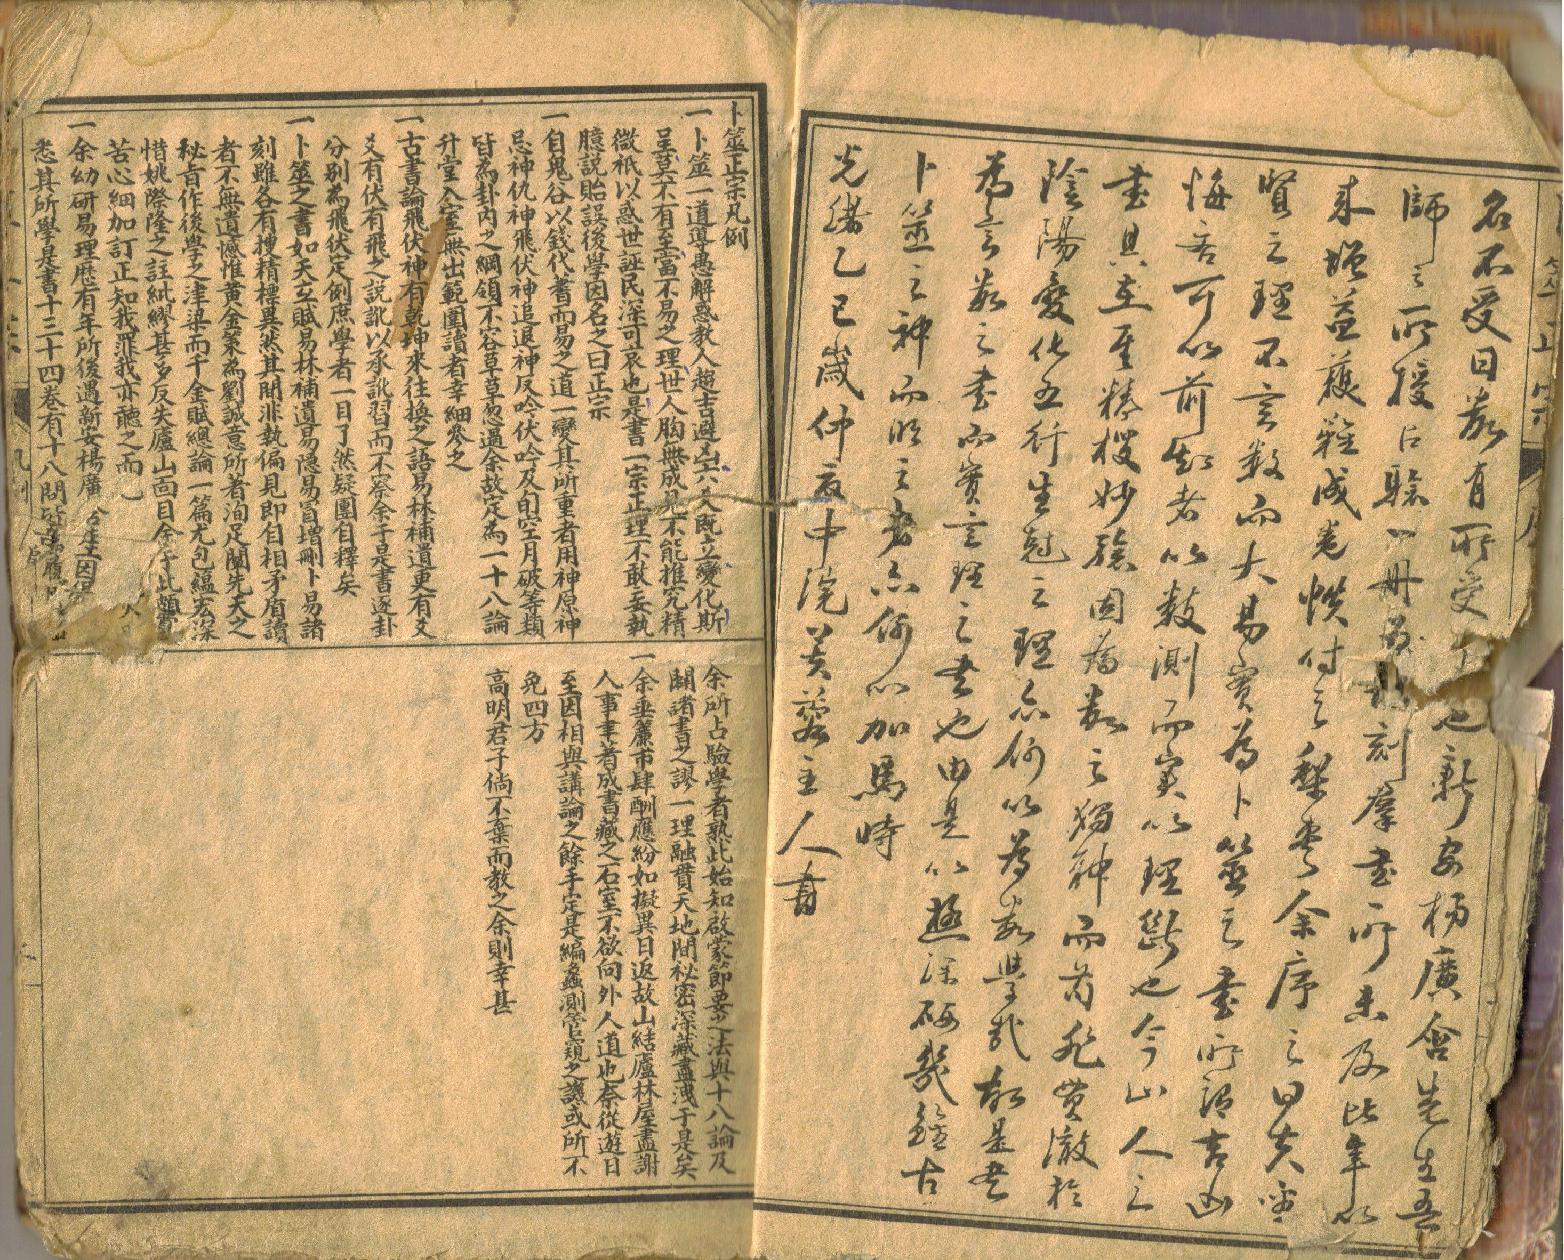 名不受曰若有所受也新安楊廣含先生吾
師之所授占驗一冊刻羣書所未及比年以
來增益蒐羅成卷帙付之梨棗余序之曰夫聖
賢之理不言數而大易實為卜筮之書所謂吉凶
悔吝可以前知者以數測而實以理斷也今山人之
書具在至精極妙驗固為數之獨神而苟非貫澈於
陰陽變化五行生剋之理亦何以為若學哉故是書
為言數之書而實言理之書也由是以極深研幾鑑古
卜筮之神而明之者亦何以加焉時
光緒乙巳歲仲夏中浣芙蓉主人書
卜筮正宗凡例
一卜筮一道導愚解惑教人趨吉避凶六爻既立變化斯
呈莫不有至當不易之理世人胸無成見不能推究精
微祇以惑世誣民深可哀也是書一宗正理不敢妄執
臆說貽誤後學因名之曰正宗
一自鬼谷以錢代蓍而易之道一變其所重者用神原神
忌神仇神飛伏神追退神反吟伏吟及旬空月破等類
皆為卦內之綱領不容草草忽過余故定為一十八論
升堂入室無出範圍讀者幸細參之
一古書論飛伏神有乾坤來往換之語易林補遺更有爻
爻有伏有飛之說訛以承訛習而不察余于是書逐卦
分別為飛伏定例庶學者一目了然疑團自釋矣
一卜筮之書如天立賦易林補遺易隱易冒增刪卜易諸
刻雖各有搜精標異然其間非執偏見即自相矛盾讀
者不無遺憾惟黃金策為劉誠意所著洵足闡先天之
秘旨作後學之津梁而千金賦總論一篇尤包緼宏深
惜姚際隆之註紕繆甚多反失廬山面目余于此頗費
苦心細加訂正知我罪我亦聽之而已
一余幼研易理歷有年所後遇新安楊廣含先生因得
悉其所學是書十三十四卷有十八問皆屬
余所占驗學者熟此始知啟蒙節要之法與十八論及
闢諸書之謬一理融貫天地間秘密深藏盡洩于是矣
一余垂簾市肆酬應紛如擬異日返故山結廬林屋盡謝
人事聿著成書藏之石室不欲向外人道也奈從遊日
至因相與講論之餘手定是編蠡測管窺之譏或所不
免四方
高明君子倘不棄而教之余則幸甚